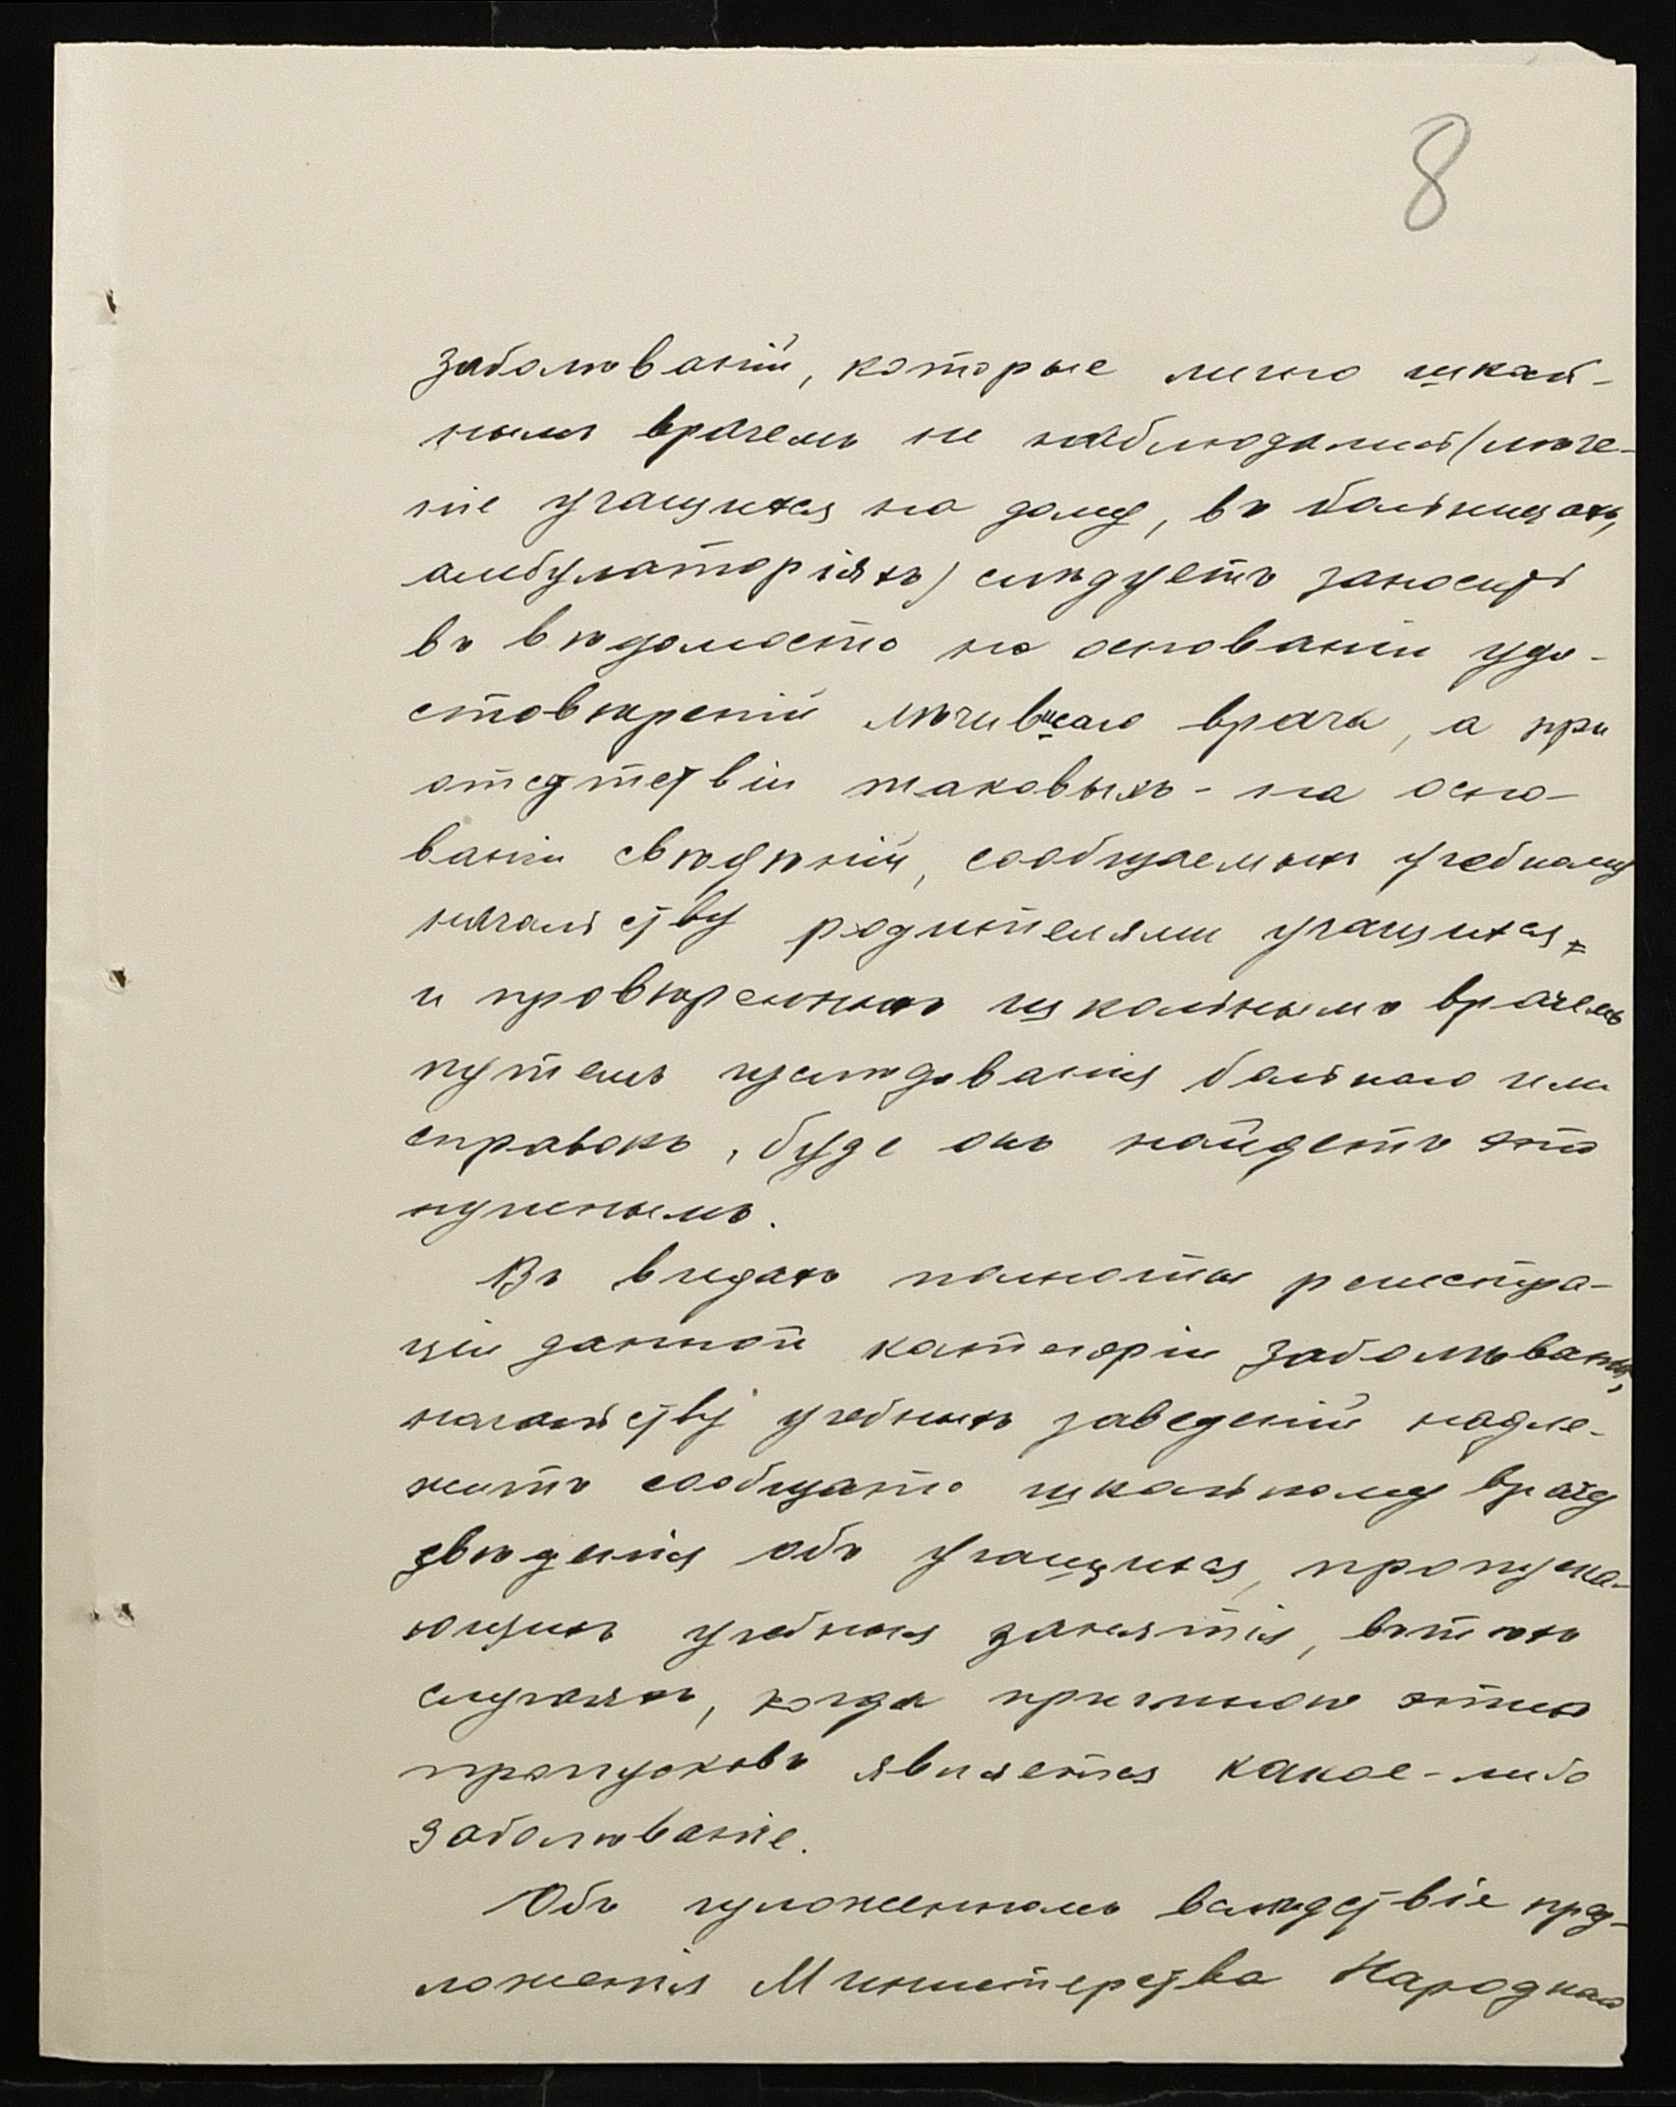 8
заболѣваній, которые лично школь-
нымъ врачемъ не наблюдались (лѣче-
ніе учащихся на дому, въ больницахъ,
амбулаторіяхъ) слѣдуетъ заносить
въ вѣдомость на основаніи удо-
стовѣреній лѣчившаго врача, а при
отсутствіи таковыхъ - на осно-
ваніи свѣдѣній, сообщаемыхъ учебному
начальству родителями учащихся
и провѣренныхъ школьнымъ врачемъ
путемъ изслѣдованія больного или
справокъ, буде онъ найдетъ это
нужнымъ.
Въ видахъ полноты регистра-
ціи данной категоріи заболѣваній,
начальству учебныхъ заведеній надле-
житъ сообщать школьному врачу
свѣдѣнія объ учащихся, пропуска-
ющихъ учебныя занятія, въ тѣхъ
случаяхъ, когда причиною этихъ
пропусковъ является какое-либо
заболѣваніе.
Объ изложенномъ вслѣдствіе пред-
ложенія Министерства Народнаго